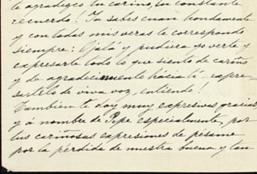 te agradezco tu cariño, tu constante
recuerdo! Tu sabes cuan hondamente
y con todas mis veras te correspondo
siempre: Ojalá y pudiera yo verte y
expresarte todo lo que siento de cariño
y de agradecimiento hácia tí - expre-
sártelo de viva voz, entiende!
Tambien te doy muy expresivas gracias
y á nombre de Pepe especialmente, por
tus cariñosas expresiones de pésame
por la pérdida de nuestra buena y tan